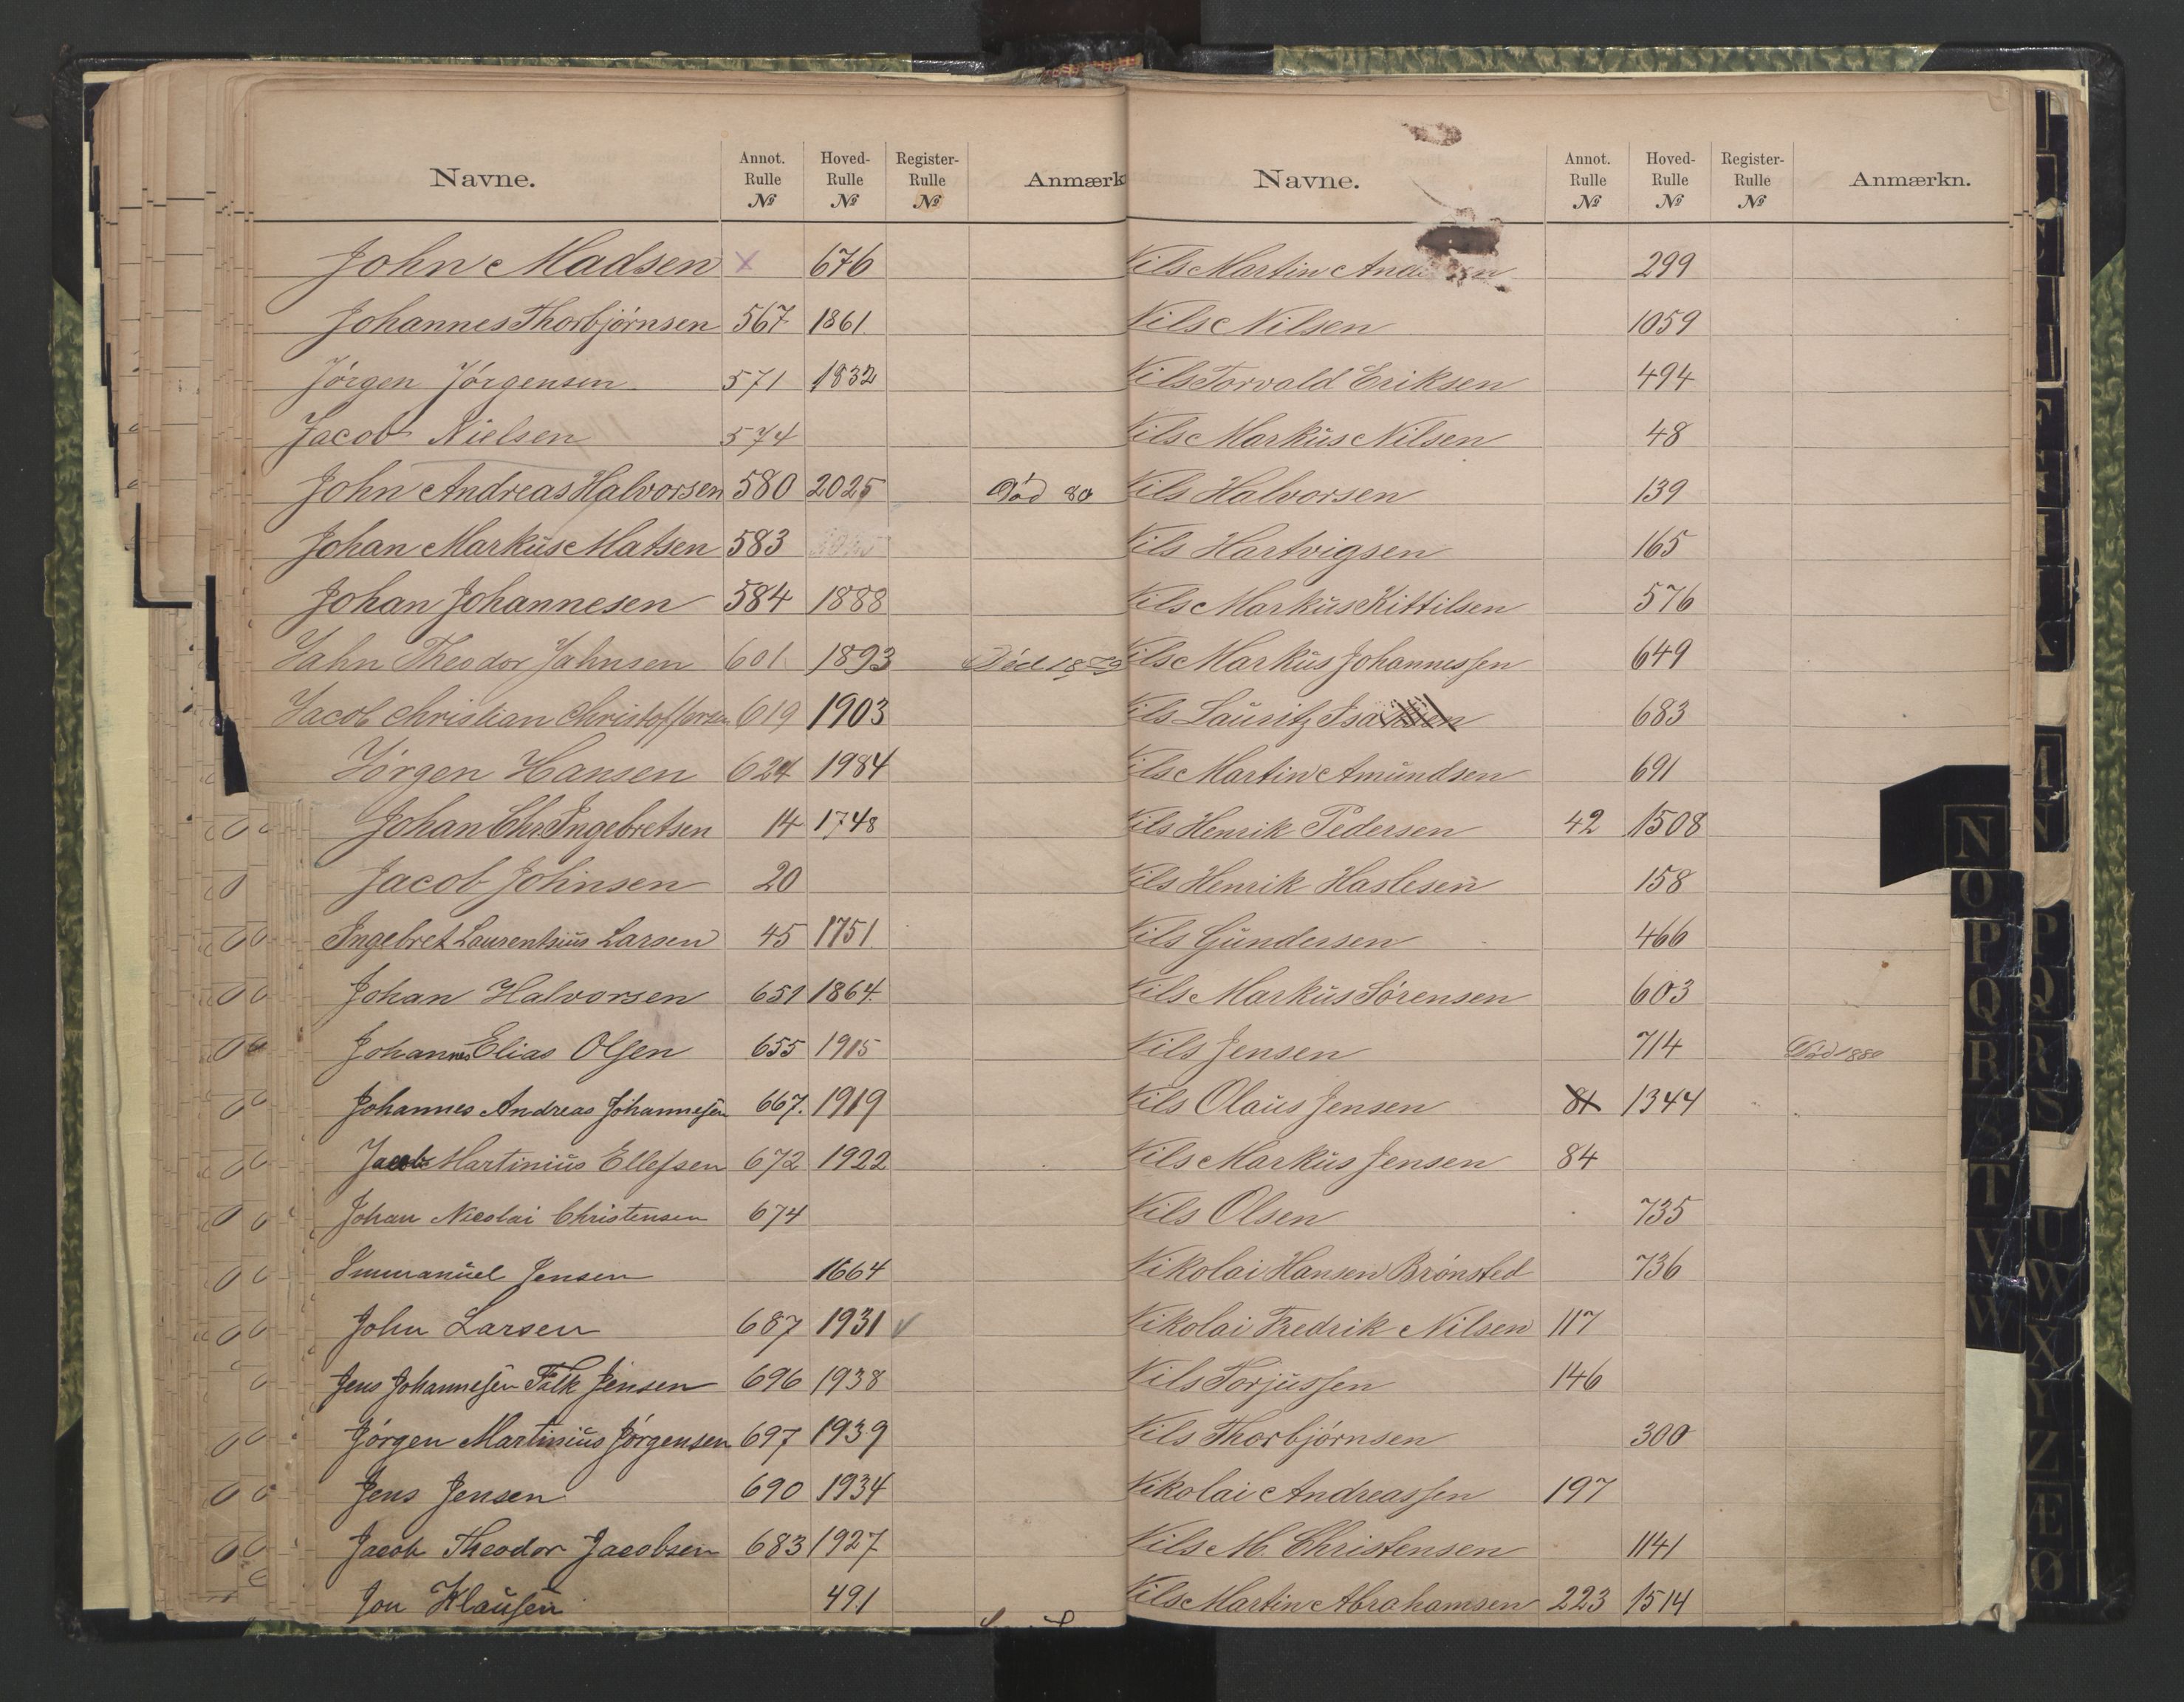 Navne. Annot. Rulle № Hoved- Rulle № Register- Rulle № Anmærk
John Madsen x 676
Johannes Thorbjörnsen 567 1861.
Jörgen Jörgensen 571 1832
Jacob Nielsen 574
John Andreas Halvorsen 580 2025 Död 80
Johan Markus Matsen 583
Johan Johannesen 584 1888
Jahn Theodor Jahnsen 601 1893 Död 1879
Jacob Christian Christoffersen 619 1903
Jörgen Hansen 624 1984
Johan Chr. Ingebretsen 14 1748
Jacob Johnsen 20
Ingebret Laurentsius Larsen 45 1751.
Johan Halvorsen 651 1864.
Johannes Elias Olssen 655 1915
Johannes Andreas Johannessen 667. 1919
Jacob Martinius Ellefsen 672 1922
Johan Nicolai Christensen 674
Immanuel Jensen 1664
John Larsen 687 1931 ✓
Jens Johannesen Falk Jensen 696 1938
Jörgen Martinius Jörgensen 697 1939
Jens Jensen 690 1934
Jacob Theodor Jacobsen 683 1927
Jon Klausen 491
Navne. Annot. Rulle № Hoved- Rulle № Register- Rulle № Anmærkn.
Nils Martin And 299
Nils Nilsen 1059
Nils Torvald Eriksen 494
Nils Markus Nilsen 48
Nils Halvorsen 139
Nils Hartvigsen 165
Nils Markus Kittilsen 576
Nils Markus Johannessen 649
Nils Lauritz Isaksen 683
Nils Martin Amundsen 691
Nils Henrik Pedersen 42 1508
Nils Henrik Haslesen 158
Nils Gundersen 466
Nils Markus Sörensen 603
Nils Jensen 714 Död 1880
Nils Olaus Jensen 81 1344
Nils Markus Jensen 84
Nils Olsen 735
Nikolai Hansen Brönsted 736
Nikolai Fredrik Nilsen 117
Nils Torjussen 146
Nils Thorbjörnsen 300
Nikolai Andreassen 197
Nils M. Christensen 1141
Nils Martin Abrahamsen 223 1514
N
O
P
Q
R
S
T
V
W
P
Q
R
S
U
W
X
Y
Z
Æ
Ø